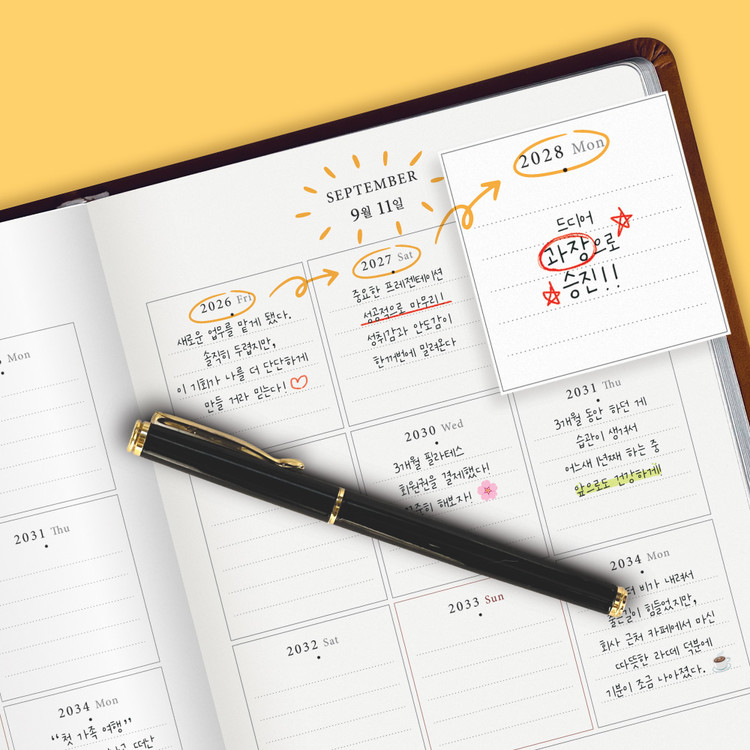 SEPTEMBER
9월 11일
2026 Fri
새로운 업무를 맡게 됐다.
솔직히 두렵지만,
이 기회가 나를 더 단단하게
만들 거라 믿는다!
2027 Sat
중요한 프레젠테이션
성공적으로 마무리!
성취감과 안도감이
한꺼번에 밀려온다
2028 Mon
드디어
과장으로
승진!!
2030 Wed
3개월 필라테스
회원권을 결제했다!
해보자!
2031 Thu
3개월 동안 하던 게
습관이 생겨서
어느새 1년째 하는 중
앞으로도 건강하게!
2032 Sat
2033 Sun
2034 Mon
비가 내려서
힘들었지만,
회사 근처 카페에서 마신
따뜻한 라떼 덕분에
기분이 조금 나아졌다.
Mon
2031 Thu
2034 Mon
“첫 가족 여행”